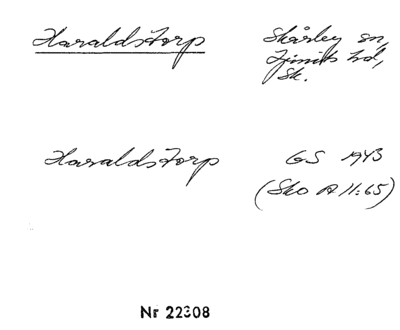 Haraldstorp Skårby sn,
Ljunits hd,
Sk.
Haraldstorp GS 1943
(Sko A II:65)
Nr 22308